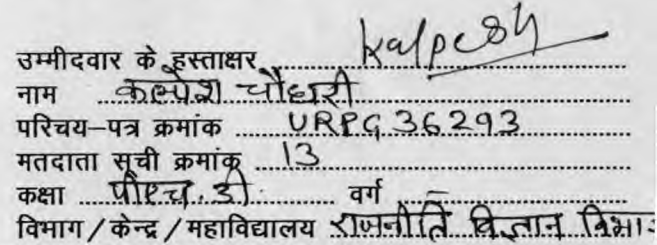 उम्मीदवार के हस्ताक्षर Kalpesh
नाम कल्पेश चौधरी
परिचय–पत्र क्रमांक URPG 36293
मतदाता सूची क्रमांक 13
कक्षा पीएच.डी. वर्ग –
विभाग / केन्द्र / महाविद्यालय राजनीति विज्ञान विभाग